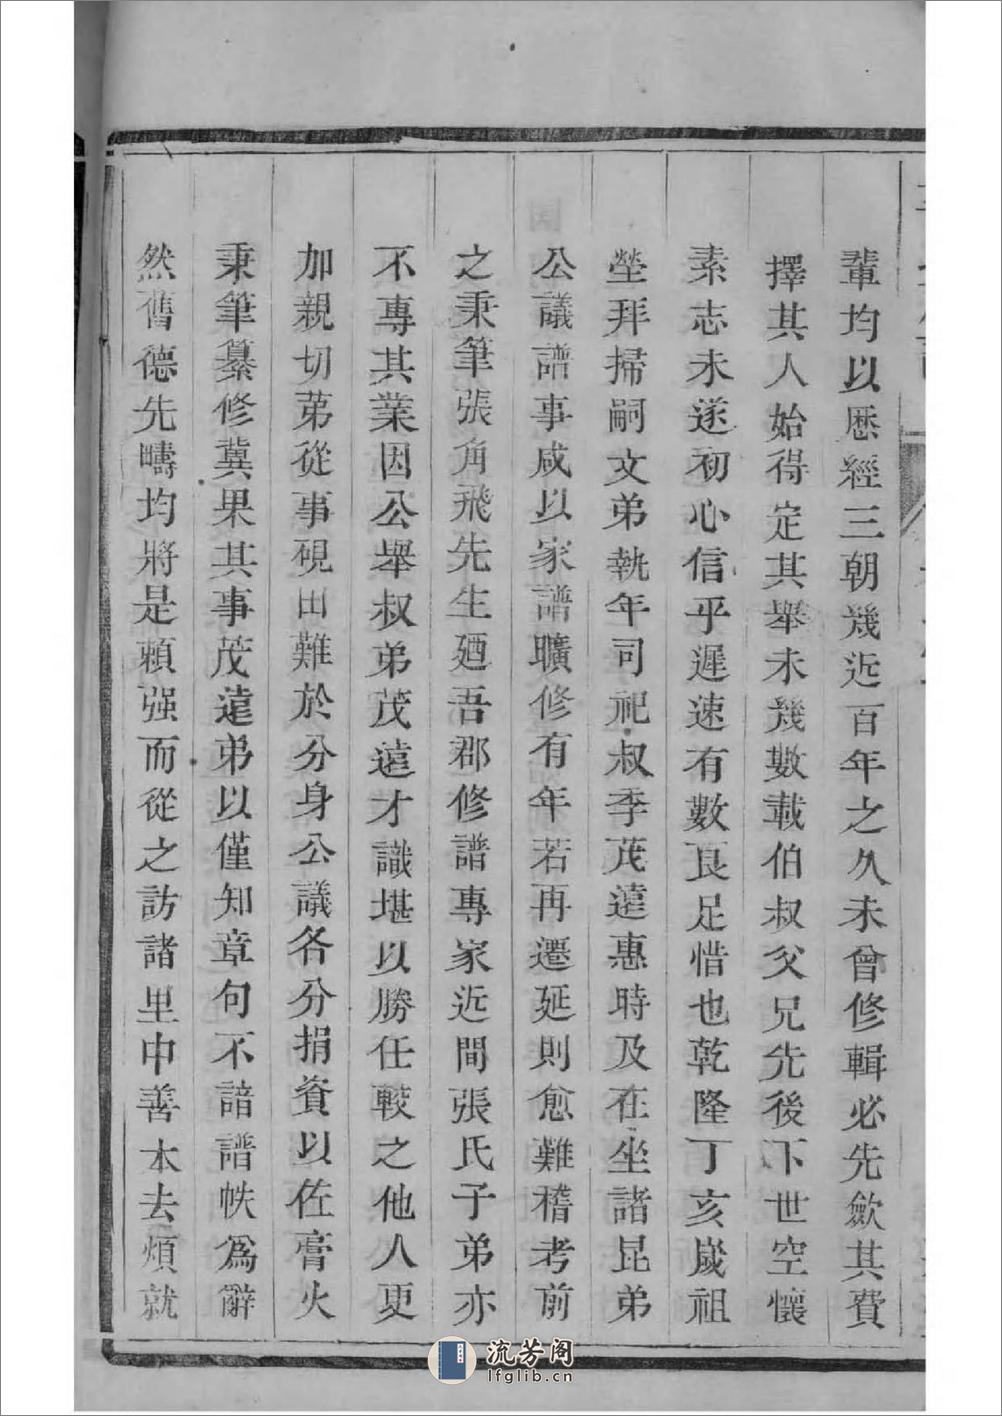 輩均以歷經三朝幾近百年之久未曾修輯必先斂其費
擇其人始得定其舉未幾數載伯叔父兄先後下世空懷
素志未遂初心信乎遲速有數良足惜也乾隆丁亥嵗祖
塋拜掃嗣文弟執年司祀叔季茂遠惠時及在坐諸昆弟
公議譜事咸以家譜曠修有年若再遷延則愈難稽考前
之秉筆張角飛先生廼吾郡修譜專家近間張氏子弟亦
不專其業因公舉叔弟茂遠才識堪以勝任較之他人更
加親切苐從事硯田難於分身公議各分捐資以佐膏火
秉筆纂修冀果其事茂遠弟以僅知章句不諳譜帙爲辭
然舊德先疇均將是賴强而從之訪諸里中善本去煩就
流芳阁
lfglib.cn